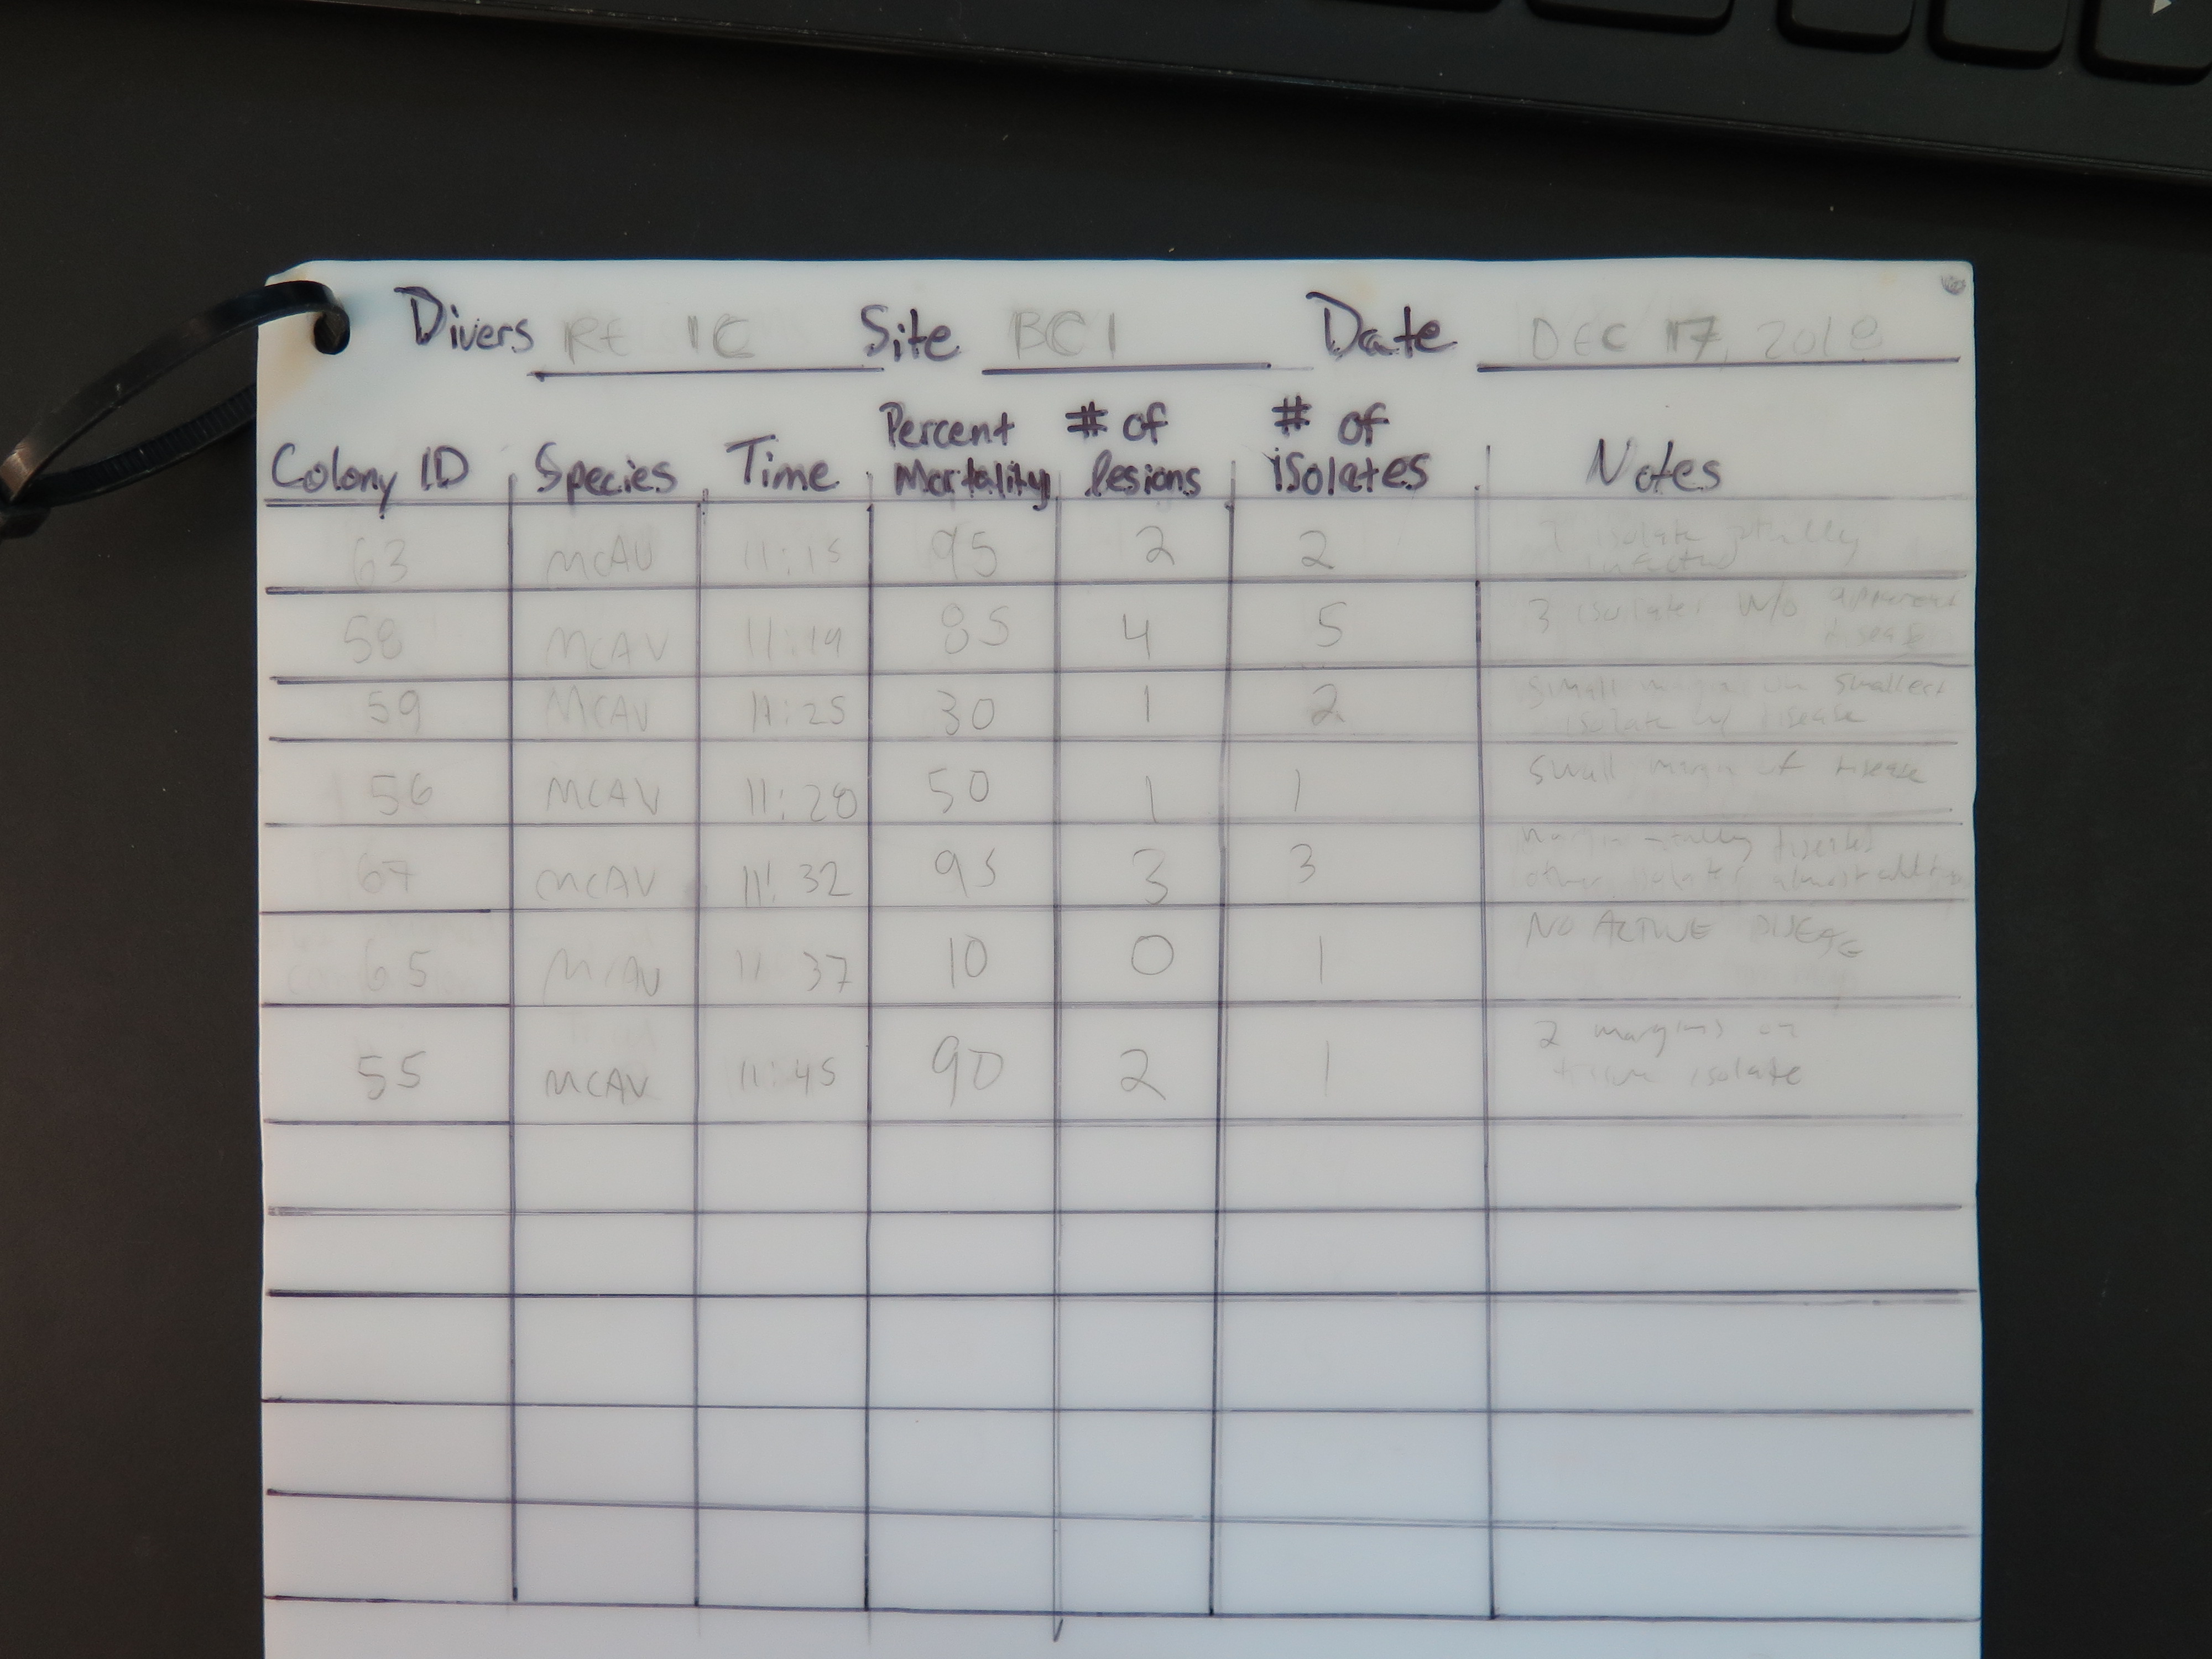 Divers RE IC Site BC1 Date DEC 17, 2018
Colony ID Species Time Percent Mortality # of lesions # of isolates Notes
63 MCAV 11:15 95 2 2 isolate
infected
58 MCAV 11:19 85 4 5 3 isolates w/o apparent
disease
59 MCAV 11:25 30 1 2 small margin on smallest
isolate w/ disease
56 MCAV 11:28 50 1 1 small margin of disease
67 MCAV 11:32 95 3 3
other isolates almost
65 MCAV 11 37 10 0 1 NO ACTIVE DISEASE
55 MCAV 11:45 90 2 1 2 margins on
tissue isolate